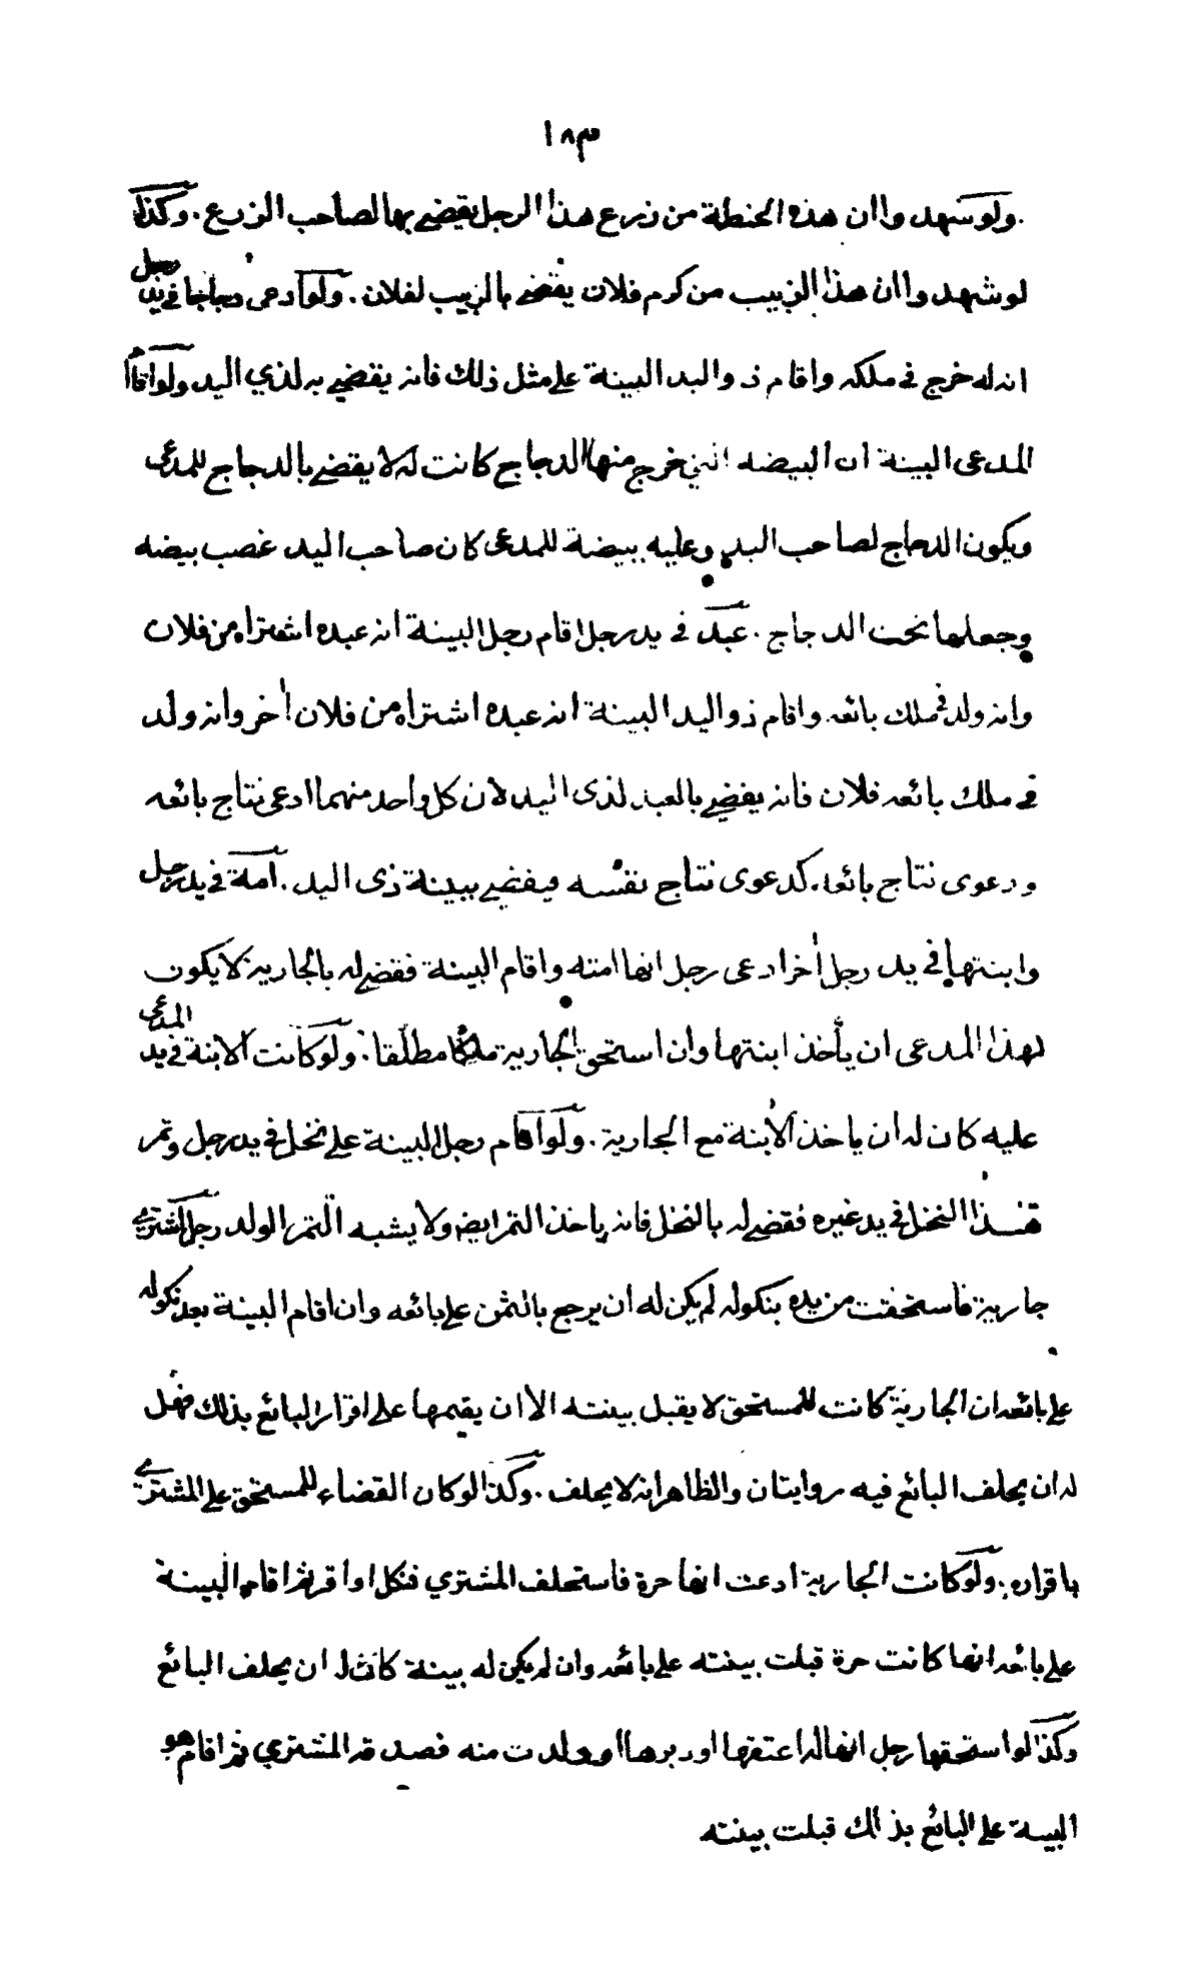 ١٨٣
ولو شهدوا ان هذه الحنطة من زرع هذا الرجل يقضي بها لصاحب الزرع . وكذا
لو شهدوا ان هذا الزبيب من كرم فلان يقضي بالزبيب لفلان . ولو ادعى دجاجا في يد رجل
انه له خرج في ملكه واقام ذو اليد البينة على مثل ذلك فانه يقضي به لذي اليد ولو اقام
المدعى البينة ان البيضه التي خرج منها الدجاج كانت له لا يقضي بالدجاج للمدعى
ويكون الدجاج لصاحب اليد وعليه ببيضة للمدعى كان صاحب اليد غصب بيضه
وجعلها تحت الدجاج . عبد في يد رجل اقام رجل البينة انه عبده اشتراه من فلان
وانه ولد في ملك بائعه واقام ذو اليد البينة انه عبده اشتراه من فلان أخر وانه ولد
في ملك بائعه فلان فانه يقضي بالعبد لذى اليد لان كل واحد منهما ادعى نتاج بائعه
ودعوى نتاج بائعه كدعوى نتاج نفسه فيقضي ببينة ذى اليد . امة في يد رجل
وابنتها في يد رجل أخر ادعى رجل انها امته واقام البينة فقضي له بالجارية لا يكون
لهذا المدعى ان يأخذ ابنتها وان استحق الجارية ملكا مطلقا . ولو كانت الابنة في يد المدعى
عليه كان له ان ياخذ الأبنة مع الجارية . ولو اقام رجل البينة على نخل في يد رجل وتمر
هذا النخل في يد غيره فقضي له بالنخل فانه ياخذ التمر ايضا ولا يشبه التمر الولد رجل اشترى
جارية فاستحقت من يده بنكوله لم يكن له ان يرجع بالثمن على بائعه وان اقام البينة بعد نكوله
على بائعه ان الجارية كانت للمستحق لا يقبل بينته الا ان يقيمها على اقرار البائع بذلك فهل
له ان يحلف البائع فيه روايتان والظاهر انه لا يحلف . وكذا لو كان القضاء للمستحق على المشتري
باقراره . ولو كانت الجارية ادعت انها حرة فاستحلف المشتري فنكل او اقر ثم اقام البينة
على بائعه انها كانت حرة قبلت بينته على بائعه وان لم يكن له بينة كان له ان يحلف البائع
وكذا لو استحقها رجل انها له اعتقها او دبرها او ولدت منه فصدقه المشتري ثم اقام هو
البينة على البائع بذالك قبلت بينته